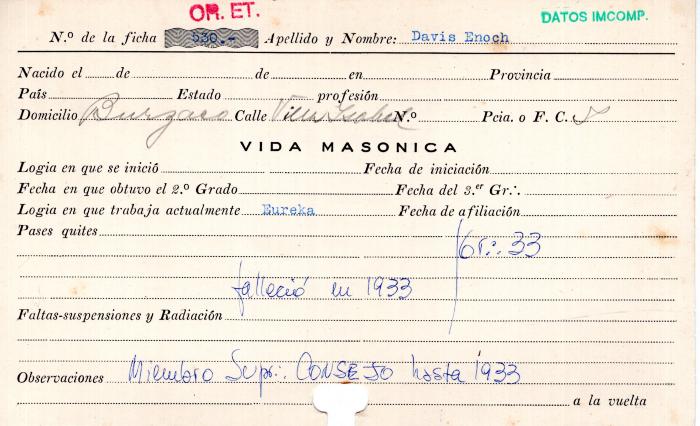 OR. ET.
DATOS IMCOMP.
N.º de la ficha 530.- Apellido y Nombre: Davis Enoch
Nacido el de de en Provincia
País Estado profesión
Domicilio Burzaco Calle Villa Isabel N.º Pcia. o F. C. S
VIDA MASONICA
Logia en que se inició Fecha de iniciación
Fecha en que obtuvo el 2.º Grado Fecha del 3.er Gr∴
Logia en que trabaja actualmente Eureka Fecha de afiliación
Pases quites
Gr∴ 33
falleció en 1933
Faltas-suspensiones y Radiación
Observaciones Miembro Supr∴ CONSEJO hasta 1933
a la vuelta